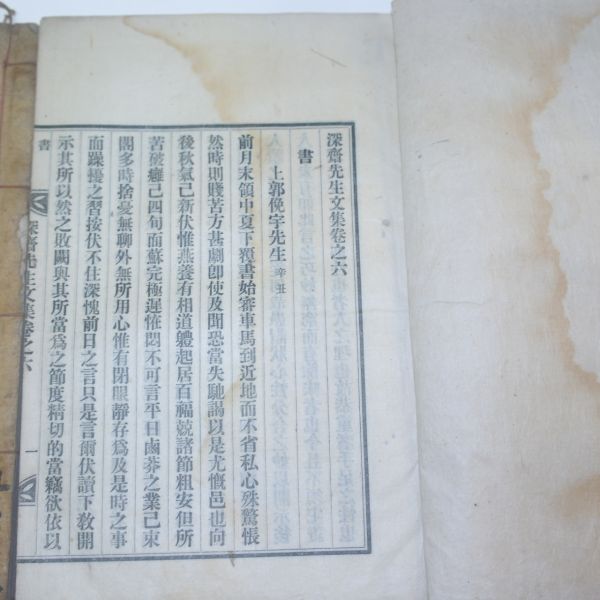 深齋先生文集卷之六
書
上郭俛宇先生 辛丑
前月末領中夏下覆書始審車馬到近地而不省私心殊驚悵
然時則賤苦方甚劇卽使及聞恐當失馳謁以是尤慨邑也向
後秋氣已新伏惟燕養有相道軆起居百福兢諸節粗安但所
苦破癰已四旬而蘇完極遲恠悶不可言平日鹵莽之業已束
閣多時捨憂無聊外無所用心惟有閉眼靜存爲及是時之事
而躁擾之習按伏不住深愧前日之言只是言爾伏讀下敎開
示其所以然之敗闕與其所當爲之節度精切的當竊欲依以
書
深齋先生文集卷之六
一